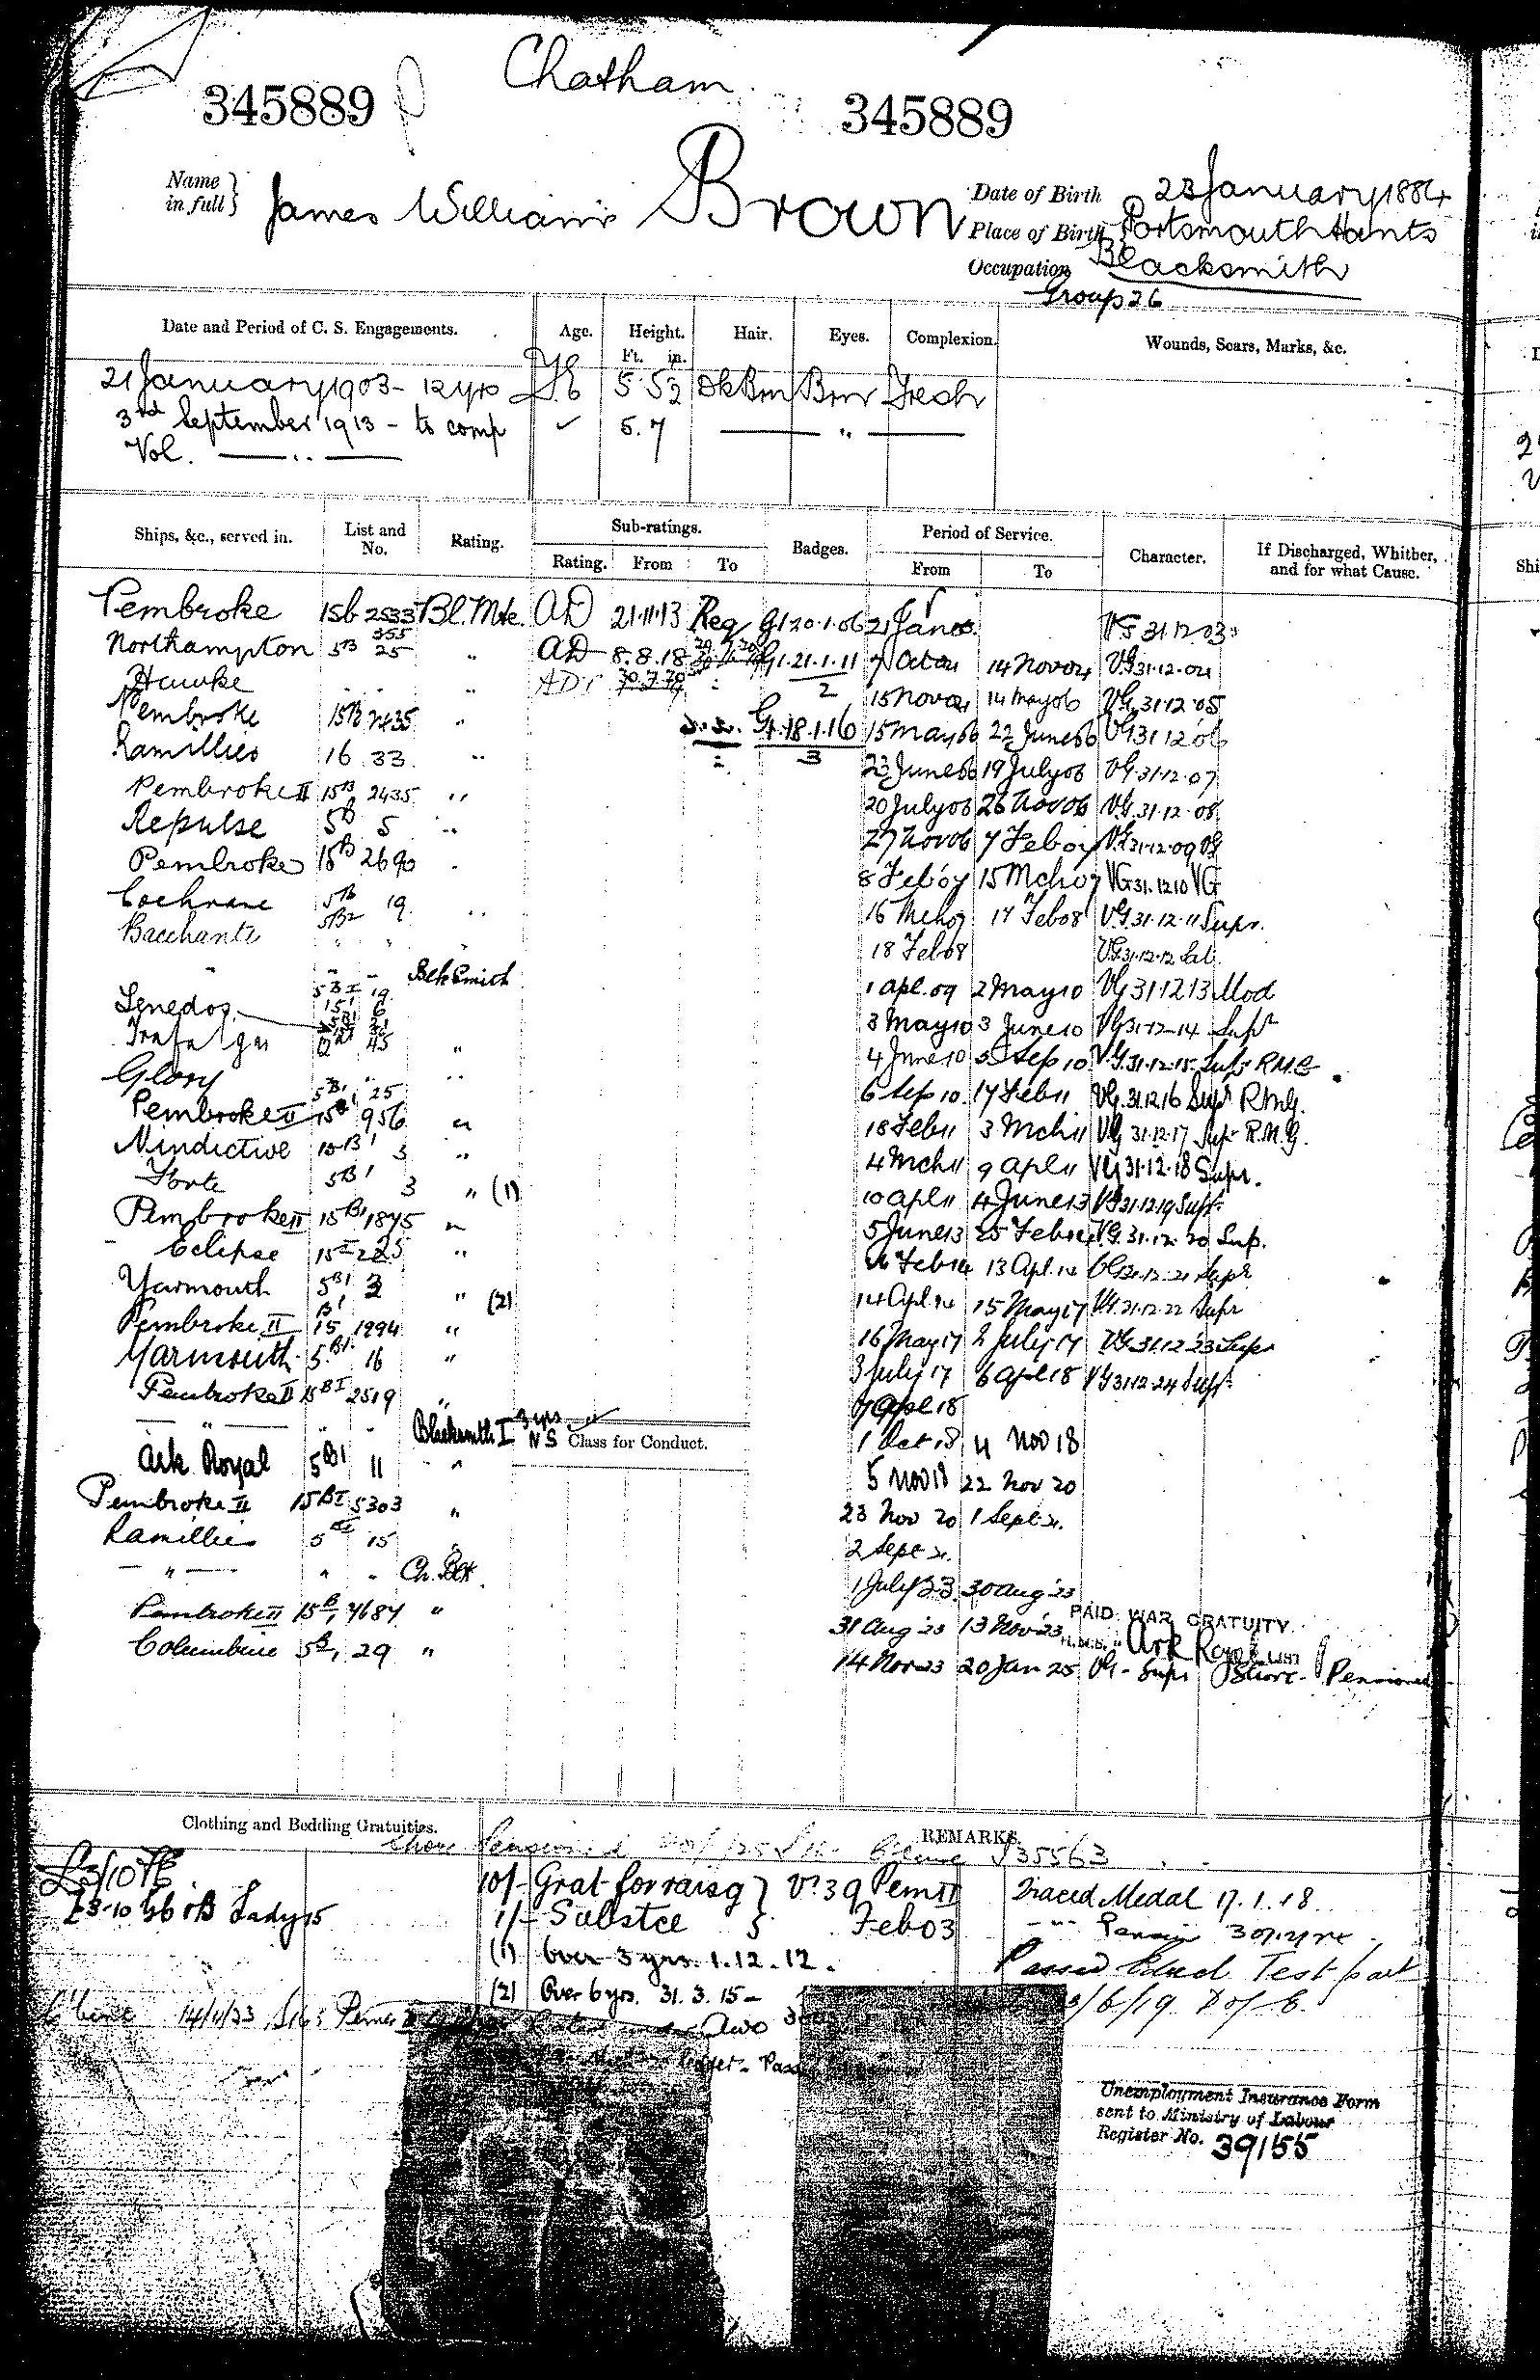 Chatham
345889 345889
Name in full } James William Brown
Date of Birth 23 January 1884
Place of Birth Portsmouth Hants
Occupation Blacksmith
Group 26
Date and Period of C. S. Engagements. Age. Height. Hair. Eyes. Complexion. Wounds, Scars, Marks, &c.
Ft. in.
21 January 1903 - 12 yrs 5 5½ Dk Brn Brn Fresh
3rd September 1913 - to comp ✓ 5.7 — " —
Vol. — " —
Ships, &c., served in. List and No. Rating. Sub-ratings. Badges. Period of Service. Character. If Discharged, Whither, and for what Cause.
Rating. From To From To
Pembroke 15b 2533 Bl. Mte. AD 21.11.13 Req G1 20.1.06 21 Jan 03 VG 31.12.03
Northampton 5B 25 " AD 8.8.18 G1. 21.1.11 7 Oct 04 14 Nov 04 VG 31.12.04
Hawke " " " 2 15 Nov 04 14 May 06 VG 31.12.05
Pembroke 15B 2435 " G1. 18.1.16 15 May 06 22 June 06 VG 31.12.06
Ramillies 16 33 " 3 23 June 06 19 July 06 VG 31.12.07
Pembroke II 15B 2435 " 20 July 06 26 Nov 06 VG. 31.12.08
Repulse 5B 5 " 27 Nov 06 7 Feb 07 VG 31.12.09 VG
Pembroke 15B 2690 " 8 Feb 07 15 Mch 07 VG 31.12.10 VG
Cochrane 5B 19 " 16 Mch 07 17 Feb 08 VG 31.12.11 Supr.
Bacchante " " " 18 Feb 08 VG 31.12.12 Sat.
" " " Blk Smith 1 Apl. 09 2 May 10 VG 31.12.13 Mod
Tenedos 3 May 10 3 June 10 VG 31.12.14 Supr
Trafalgar 45 " 4 June 10 5 Sep 10 VG. 31.12.15 Supr R.M.G.
Glory 5B1 25 " 6 Sep 10 17 Feb 11 VG. 31.12.16 Supr R.M.G.
Pembroke II 15B1 956 " 18 Feb 11 3 Mch 11 VG 31.12.17 Supr R.M.G.
Vindictive 15B1 3 " 4 Mch 11 9 Apl 11 VG 31.12.18 Supr.
Forte 5B1 3 " (1) 10 Apl 11 4 June 13 VG 31.12.19 Supr.
Pembroke II 15B1 1875 " 5 June 13 25 Feb 14 VG. 31.12.20 Sup.
Eclipse " 26 Feb 14 13 Apl. 14 VG 31.12.21 Supr
Yarmouth 5B1 3 " (2) 14 Apl 14 15 May 17 VG. 31.12.22 Supr
Pembroke II 15B1 1994 " 16 May 17 2 July 17 VG 31.12.23 Supr
Yarmouth 5.B1. 16 " 3 July 17 6 Apl 18 VG 31.12.24 Supr.
Pembroke II 15BI 2519 " 7 Apl 18
— " — " " Blacksmith I 3 yrs NS Class for Conduct. 1 Oct 18 4 Nov 18
Ark Royal 5B1 11 " 5 Nov 18 22 Nov 20
Pembroke II 15BI 5303 " 23 Nov 20 1 Sept 21.
Ramillies 15 " 2 Sept 21.
— " — " " Ch. Blk. 1 July 23 30 Aug '23
Pembroke II 15B1 7687 " 31 Aug '23 13 Nov '23
PAID WAR GRATUITY
H.M.S. " Ark Royal LIST
Columbine 5B1 29 " 14 Nov 23 20 Jan 25 VG - Supr Shore - Pensioned
Clothing and Bedding Gratuities. REMARKS.
Shore Pensioned
£3/10
10/- Grat for raisg } V. 39 Pem II
1/- Substce } Feb 03
(1) Over 3 yrs. 1.12.12.
(2) Over 6 yrs. 31.3.15 -
Traced Medal 17.1.18
Passed Educl Test part
Unemployment Insurance Form
sent to Ministry of Labour
Register No. 39155